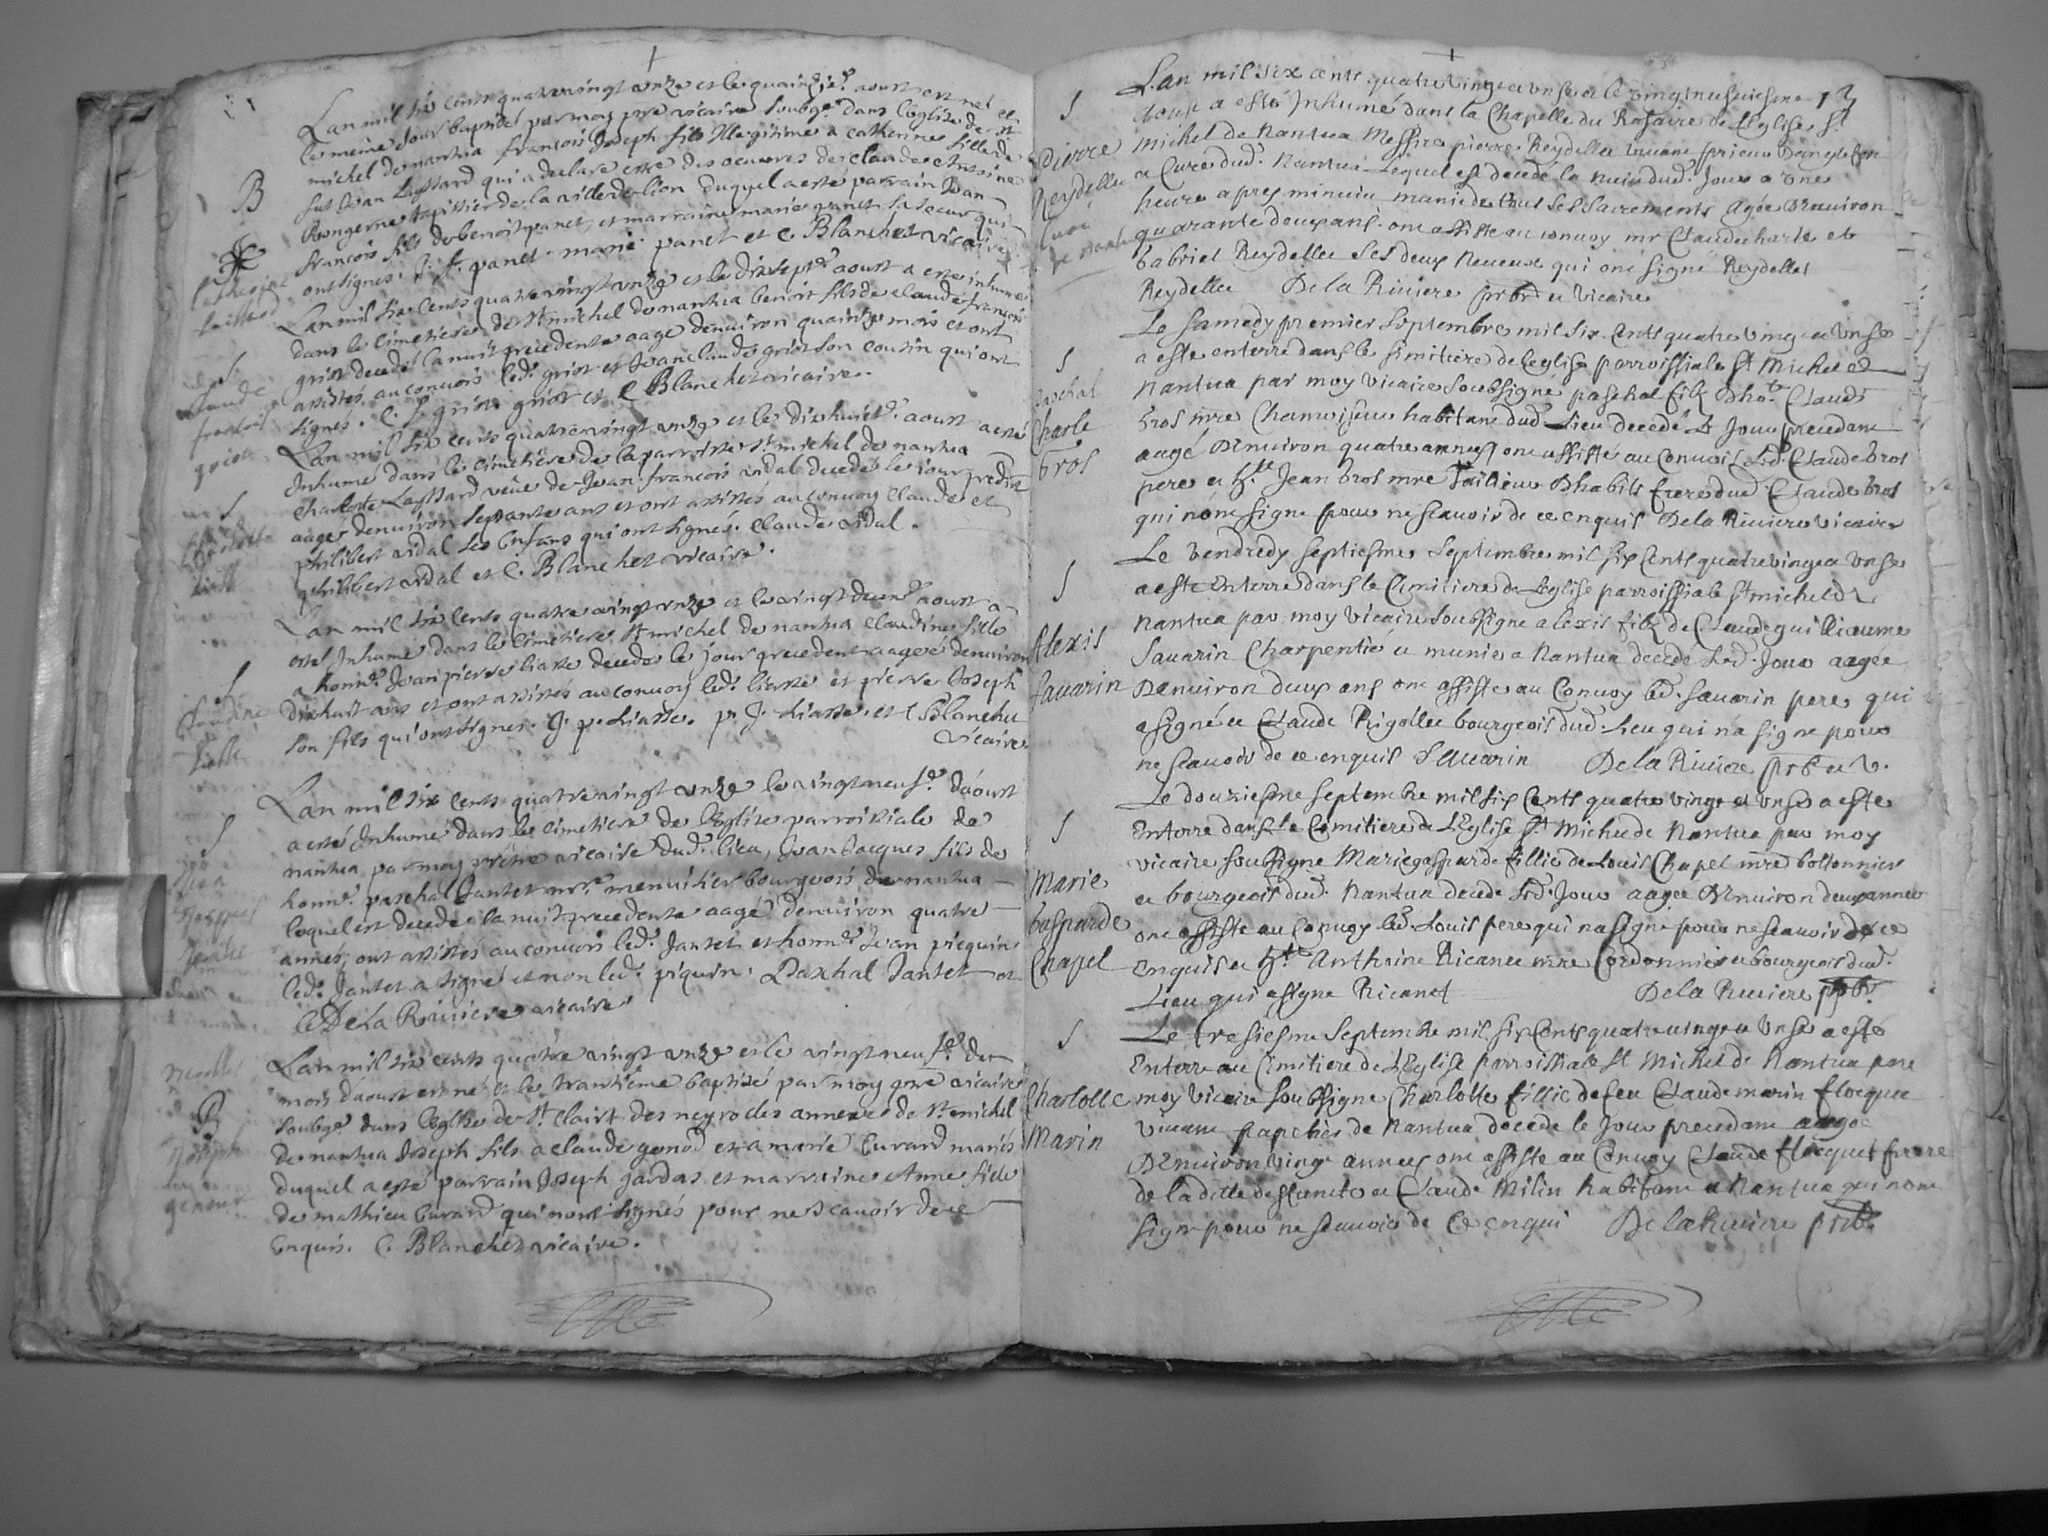 Lan mil six cents quatrevingt unze et le quainzie. aoust est né et
le meme Jour baptisé par moy pre vicaire soubge. dans l'eglise de st
michel de nantua françois Joseph fils Illegitime a catherine fille de
fut Jean Lassard qui a declaré estre des oeuvres de claude Antoine
tapissier de la ville de lion duquel a esté parrain Jean
françois fils de benoit panet, et marraine marie panet sa soeur qui
ont signes. J. f. panet. marie panet et C. Blanchet vicaire
Lan mil six cents quatrevingt unze et le dixsept. aoust a esté inhumé
dans le cimetiere de St michel de nantua benoit fils de claude françois
griot decedé la nuit precedente aagé denviron quainze mois et ont
assistés au convois led. griot et Jean claude griot son cousin qui ont
signes. C. f. griot. griot et C Blanchet vicaire.
Lan mil six cents quatrevingt unze et le dixhuict. aoust a esté
Inhumé dans le cimetiere de la parroisse st michel de nantua
Charlotte Lassard veüe de Jean françois vidal decedés le jour predit
aagée denviron septante ans et ont assistés au convoy claude et
philibert vidal ses enfans qui ont signés. Claude vidal.
philibert vidal et C. Blanchet vicaire.
Lan mil six cents quatrevingt unze et le vingt deux. aoust a
esté Inhumé dans le cimetiere st michel de nantua claudine fille
a honn. Jean pierre liatte decedés le jour precedent aageé denviron
dixhuit ans et ont assistés au convoy led. liatte et pierre Joseph
son fils qui ont signes. J. p. Liatte. p. J. Liatte. et C Blanchet
vicaire
Lan mil six cents quatrevingt unze le vingtneuf. d'aoust
a esté Inhumé dans le cimetiere de l'Eglise parroissiale de
nantua par moy prêtre vicaire dud. lieu, Jean Jacques fils de
honn. paschal Jantet mre menuisier bourgeois de nantua
lequel est decedé la nuit precedente aagé denviron quatre
années, ont assistes au convois led. Jantet et honn. Jean piequin
led. Jantet a signé et non led. piquin. Paschal Jantet et
C De La Riviere vicaire
Lan mil six cents quatre vingt unze et le vingt neuf. du
mois d'aoust est né et le trantiéme baptisé par moy pre vicaire
soubge. dans leglise de st. Clairt des neyrodes annexe de st michel
de nantua Joseph fils a claude genod et a marie Curand mariés
duquel a esté parrain Joseph Jardas et marraine Anne fille
de mathieu Curand qui nont signés pour ne scavoir de ce
enquis. C. Blanchet vicaire.
B
S
S
S
S
B
Lan mil six cents quatre vingt et unse et le vingtneufiesme 13
doust a esté Inhumé dans la Chapelle du Rosaire de leglise St
michel de Nantua Messire pierre Reydellet
et Curé dud. Nantua Lequel est decede la nuit dud. Jour a une
heure apres minuit munie de tout ses sacrements agée denviron
quarante deux ans. ont assiste au convoy mr Claude charle et
Gabriel Reydellet ses deux neveux qui ont signé Reydellet
Reydellet De la Riviere prbr et vicaire
S
Pierre
Reydellet
Curé
de Nantua
Le samedy premier Septembre mil six cents quatre vingt et unse
a este enterré dans le simitiere de leglise parroissiale St Michel de
Nantua par moy vicaire soubsigné paschal filz dho. Claude
bros mre Chamoiseur habitant dud. Lieu decede le Jour precedant
aagé denviron quatre années ont assisté au convois led. Claude bros
pere et h. Jean bros mre Tailieur dhabits frere dud. Claude bros
qui nont signe pour ne scavoir de ce enquis De la Riviere vicaire
S
paschal
Charle
bros
Le vendredy septiesme Septembre mil six Cents quatre vingt et unse
a este enterré dans le Cimitiere de Leglise parroissiale st michel de
Nantua par moy vicaire soubsigne alexis filz de Claude guilliaume
Savarin Charpentié et munier a Nantua decede led. Jour aagée
denviron deux ans ont assiste au Convoy led. savarin pere qui
a signé et Claude Rigollet bourgeois dud. Lieu qui na signe pour
ne scavoir de ce enquis Savarin De la Riviere prbr et v.
S
Alexis
Savarin
Le douziesme septembre mil six Cents quatre vingt et unse a este
Enterre dans le Cimitiere de LEglise St Michel de Nantua par moy
vicaire soubsigne Marie gasparde fillie de Louis Chapel mre bottonnier
et bourgeois dud. Nantua decede led. Jour aagee denviron deux annees
ont assiste au Convoy led. Louis pere qui na signé pour ne scavoir de ce
enquis et h. Anthoine Ricanet mre Cordonnier et bourgeois dud.
Lieu qui a signe Ricanet De la Riviere prbr
S
Marie
Gasparde
Chapel
Le tresiesme Septembre mil six Cents quatre vingt et unse a esté
Enterre au Cimitiere de LEglise parroissiale st Michel de Nantua par
moy vicaire soubsigne Charlotte fillie de feu Claude marin flocquet
vivant papetier de Nantua decede le Jour precedant aagée
denviron vingt années ont assiste au Convoy Claude flocquet frere
de ladicte deffuncte et Claude Milin habitant a Nantua qui nont
signe pour ne scavoir de Ce enqui De la Riviere prbr
S
Charlotte
Marin